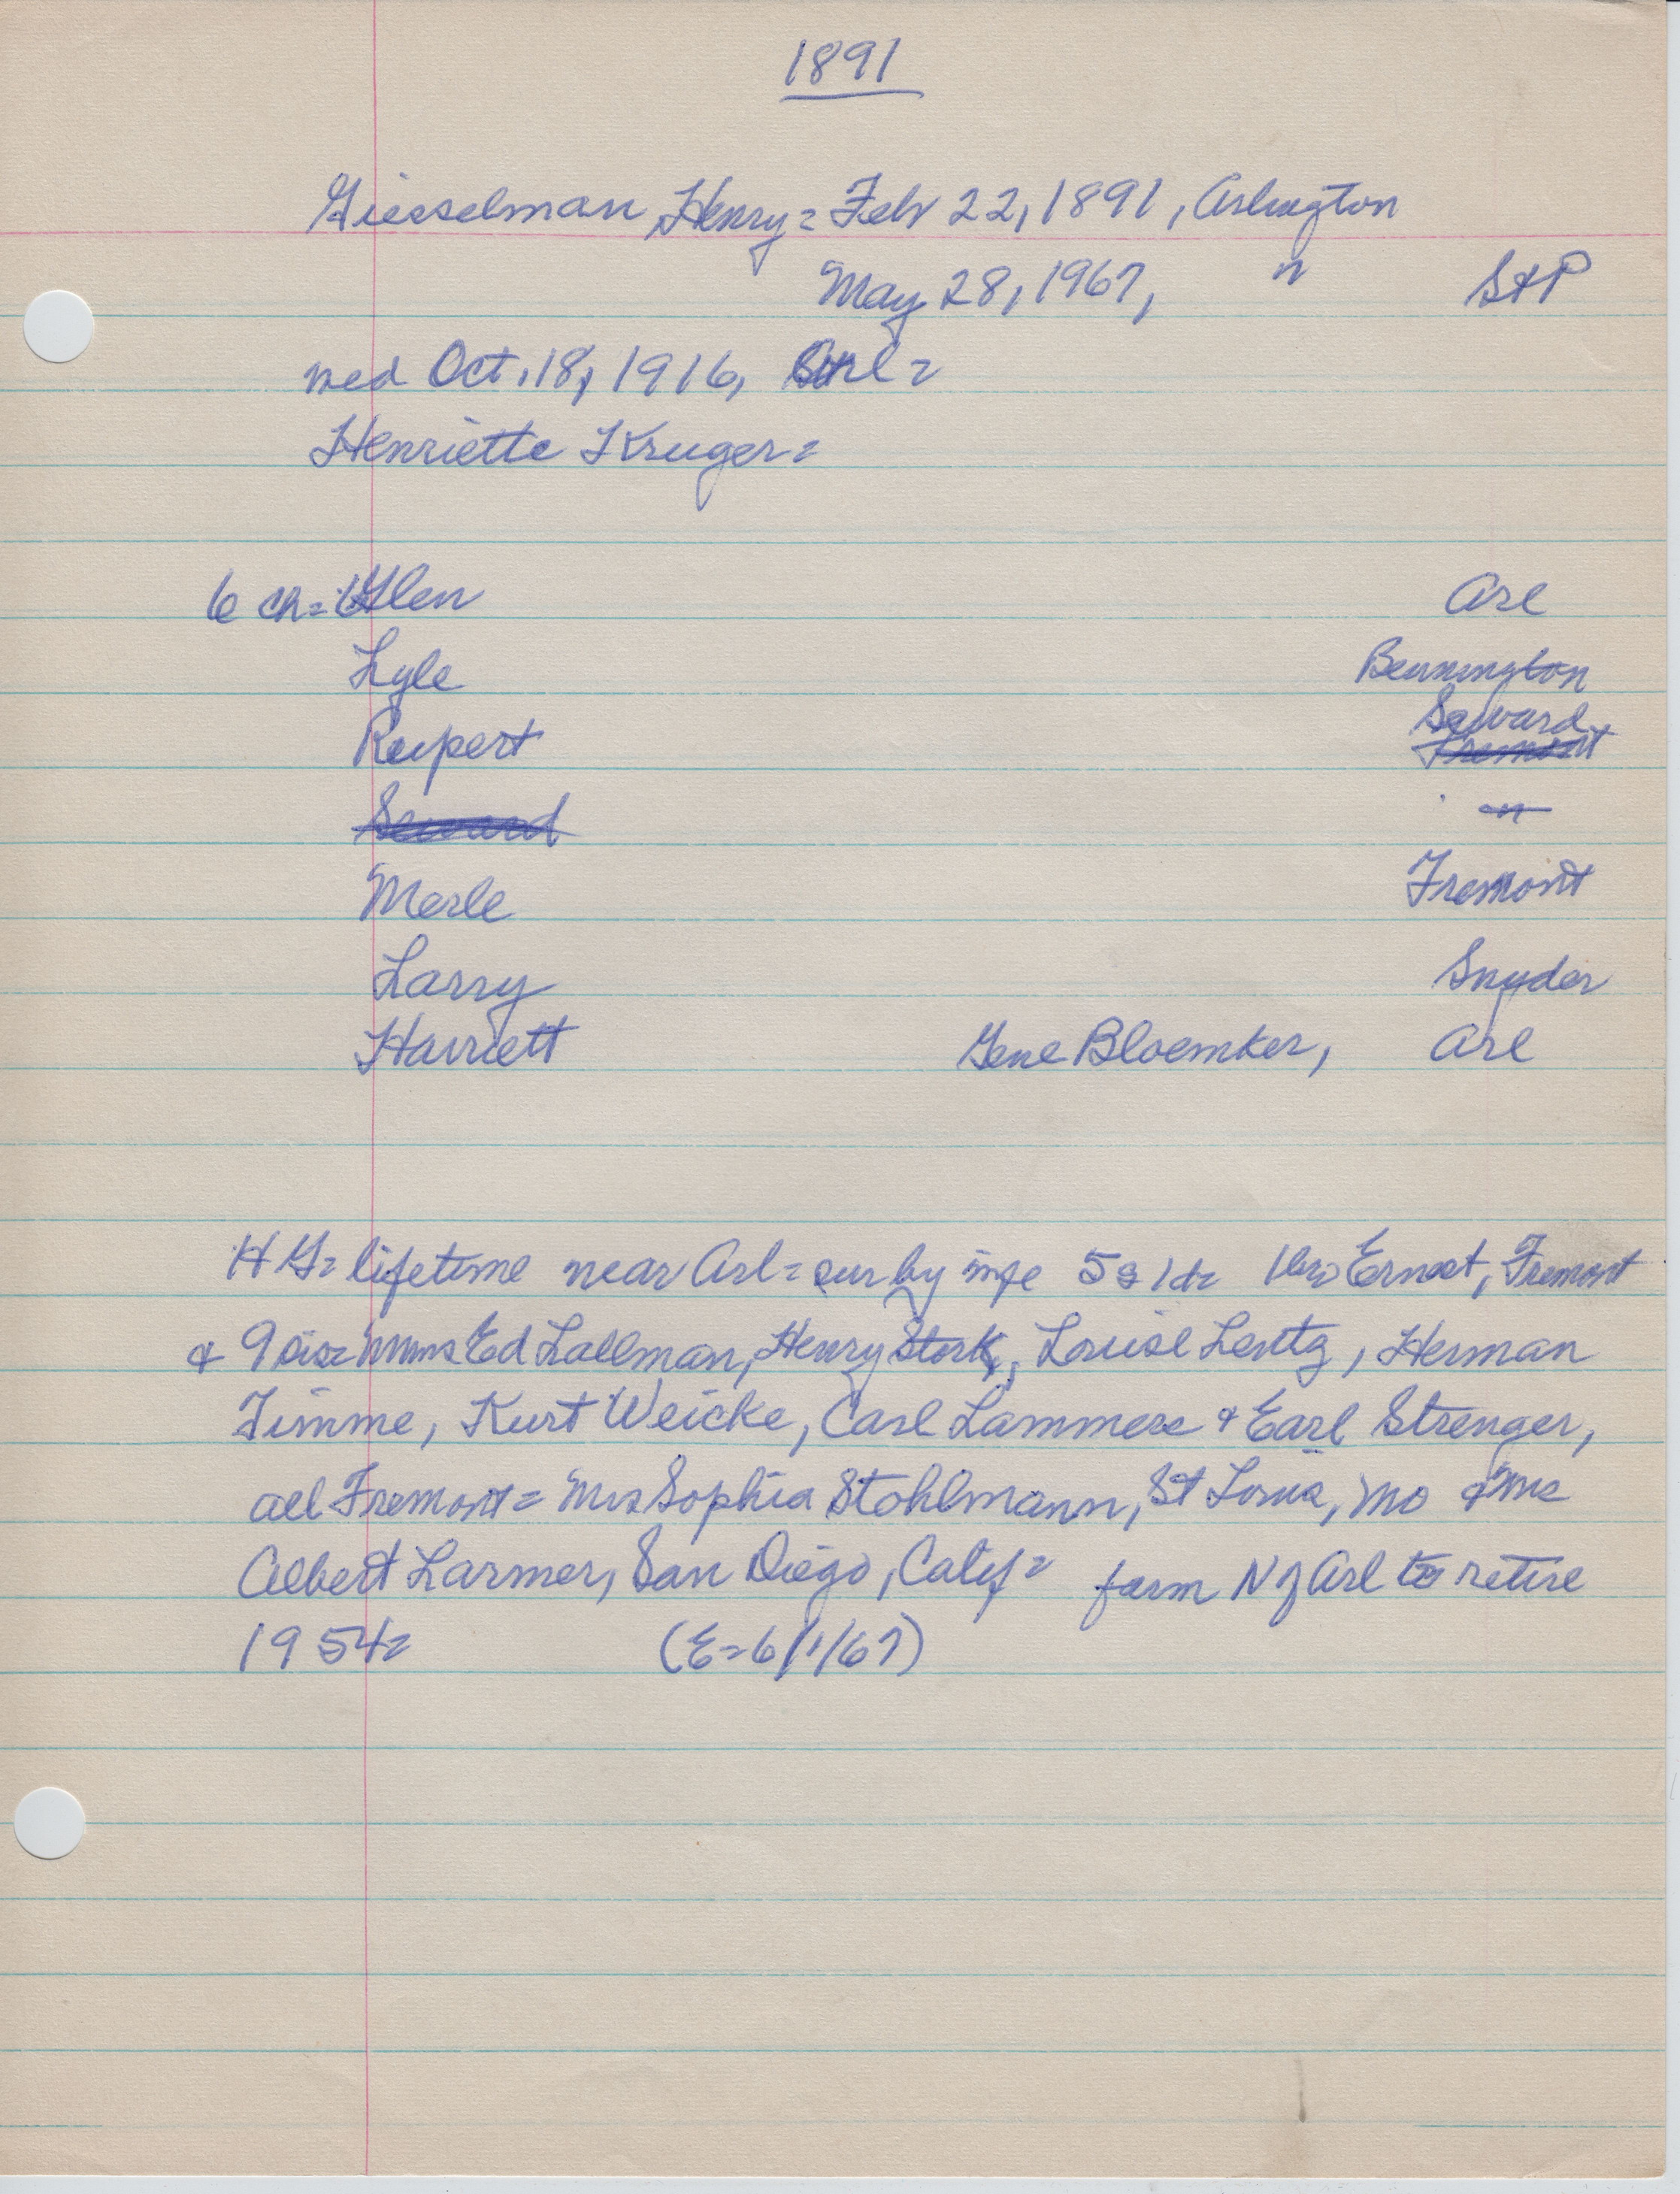 1891
Giesselman, Henry = Feb 22, 1891, Arlington
May 28, 1967, " St P
wed Oct. 18, 1916, Arl =
Henriette Kruger =
6 ch = Glen Arl
Lyle Bennington
Rupert Seward
Fremont
Seward "
Merle Fremont
Larry Snyder
Harriett Gene Bloemker, Arl
HG = lifetime near Arl = sur by wife 5 s 1 d = 1 bro Ernest, Fremont
& 9 sis = Mmes Ed Lallman, Henry Stork, Louise Lentz, Herman
Timme, Kurt Weicke, Carl Lammers & Earl Strenger,
all Fremont = Mrs Sophia Stohlmann, St Louis, Mo & Mrs
Albert Larmer, San Diego, Calif = farm N of Arl to retire
1954 = (E = 6/1/67)